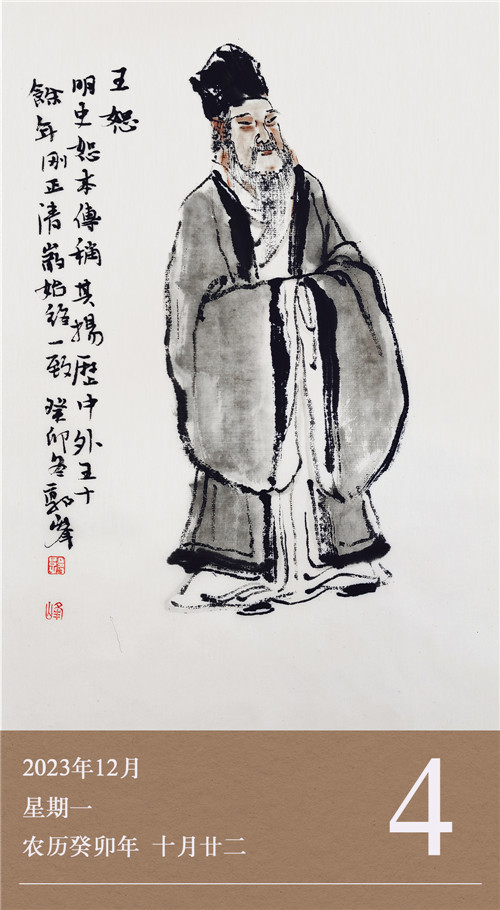 王恕
明史恕本傳稱其揚歷中外五十
餘年剛正清嚴始終一致 癸卯冬 郭峰
2023年12月
星期一
农历癸卯年 十月廿二
4